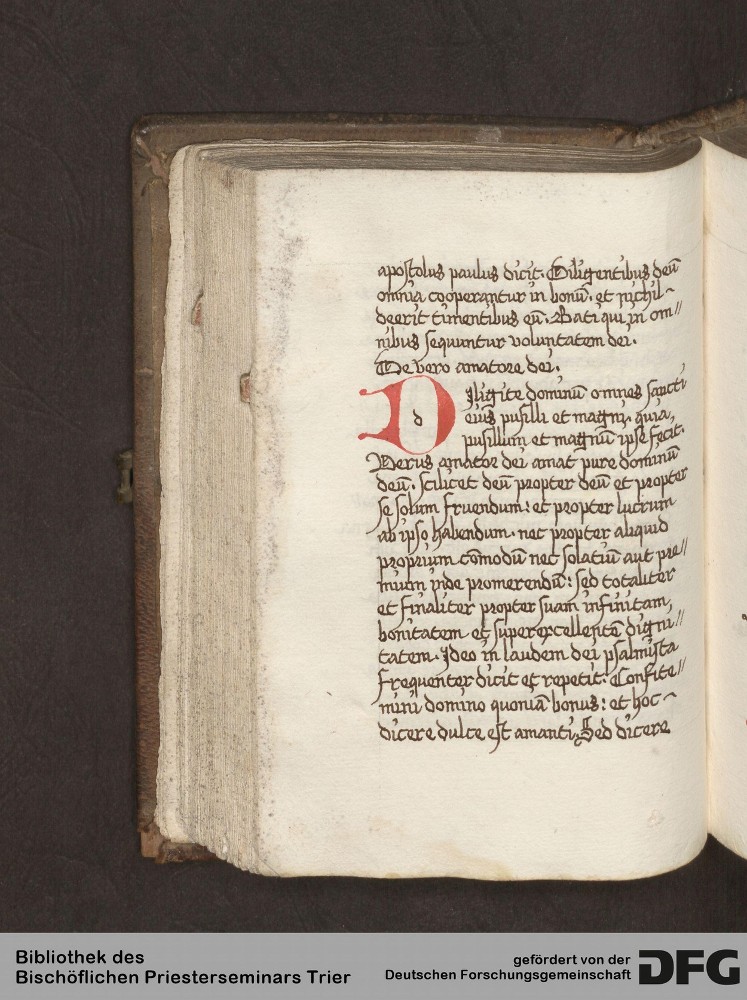 apostolus paulus dicit. Diligentibus deū
omnia cooperantur in bonū. et nichil
deerit timentibus eū. Bati qui in om//
nibus sequuntur voluntatem dei.
De vero amatore dei.
D
d
Iligite dominū omnes sancti
eius pusilli et magni. quia
pusillum et magnū ipse fecit.
Verus amator dei amat pure dominū
deū. scilicet deū propter deū et propter
se solum fruendum: et propter lucrum
ab ipso habendum. nec propter aliquid
proprium cōmodū nec solatiū aut pre//
mium inde promerendū: sed totaliter
et finaliter propter suam infinitam
bonitatem et superexcellentē digni//
tatem. Ideo in laudem dei psalmista
frequenter dicit et repetit. Confite//
mini domino quoniā bonus: et hoc
dicere dulce est amanti. Sed dicere
Bibliothek des
Bischöflichen Priesterseminars Trier
gefördert von der
Deutschen Forschungsgemeinschaft
DFG